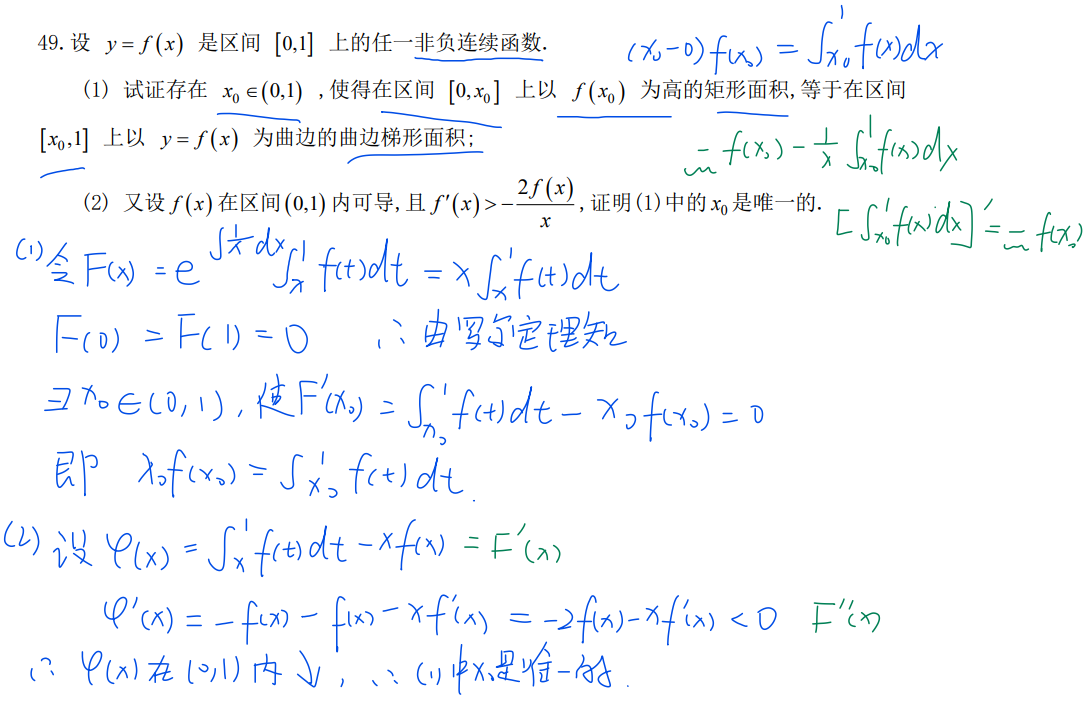 49. 设 y = f(x) 是区间 [0,1] 上的任一非负连续函数.
(x₀-0)f(x₀) = ∫_{x₀}^{1} f(x)dx
(1) 试证存在 x₀∈(0,1) ,使得在区间 [0,x₀] 上以 f(x₀) 为高的矩形面积,等于在区间
[x₀,1] 上以 y = f(x) 为曲边的曲边梯形面积;
- f(x₀) - 1/x ∫_{x₀}^{1} f(x)dx
(2) 又设 f(x) 在区间(0,1) 内可导,且 f′(x) > -2f(x)/x ,证明(1)中的 x₀ 是唯一的.
[∫_{x₀}^{1} f(x)dx]′ = - f(x₀)
(1) 令 F(x) = e^{∫1/x dx} ∫_{x}^{1} f(t)dt = x∫_{x}^{1} f(t)dt
F(0) = F(1) = 0 ∴由罗尔定理知
∃x₀∈(0,1), 使F′(x₀) = ∫_{x₀}^{1} f(t)dt - x₀f(x₀) = 0
即 x₀f(x₀) = ∫_{x₀}^{1} f(t)dt.
(2) 设 φ(x) = ∫_{x}^{1} f(t)dt - xf(x) = F′(x)
φ′(x) = -f(x) - f(x) - xf′(x) = -2f(x) - xf′(x) < 0 F″(x)
∴ φ(x)在(0,1)内↓, ∴(1)中x₀是唯一的.